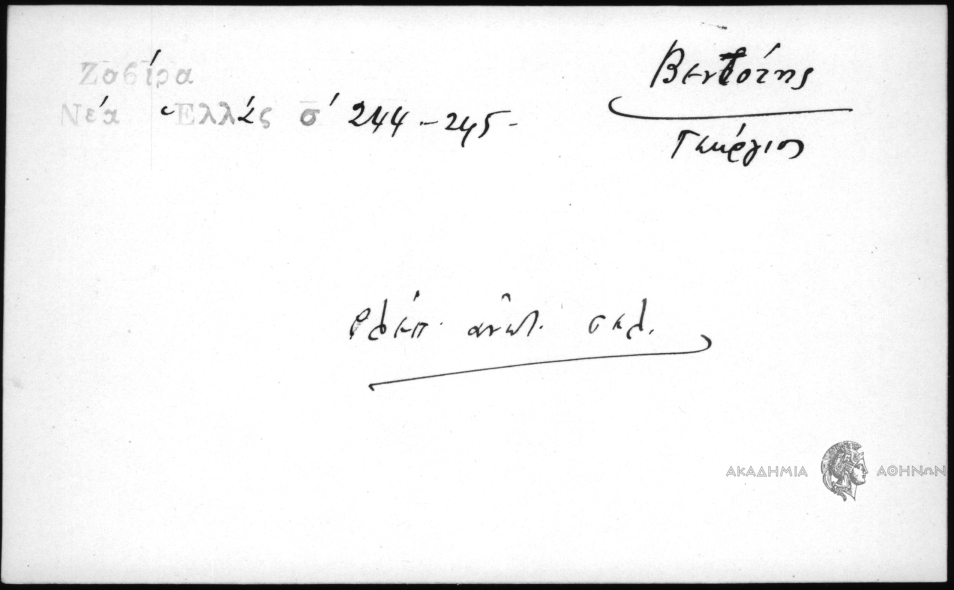 Ζαβίρα
Νέα Ἑλλάς σ' 244-245-
Βεντότης
Γεώργιος
βλέπ. ἀνωτ. σελ.
ΑΚΑΔΗΜΙΑ ΑΘΗΝΩΝ